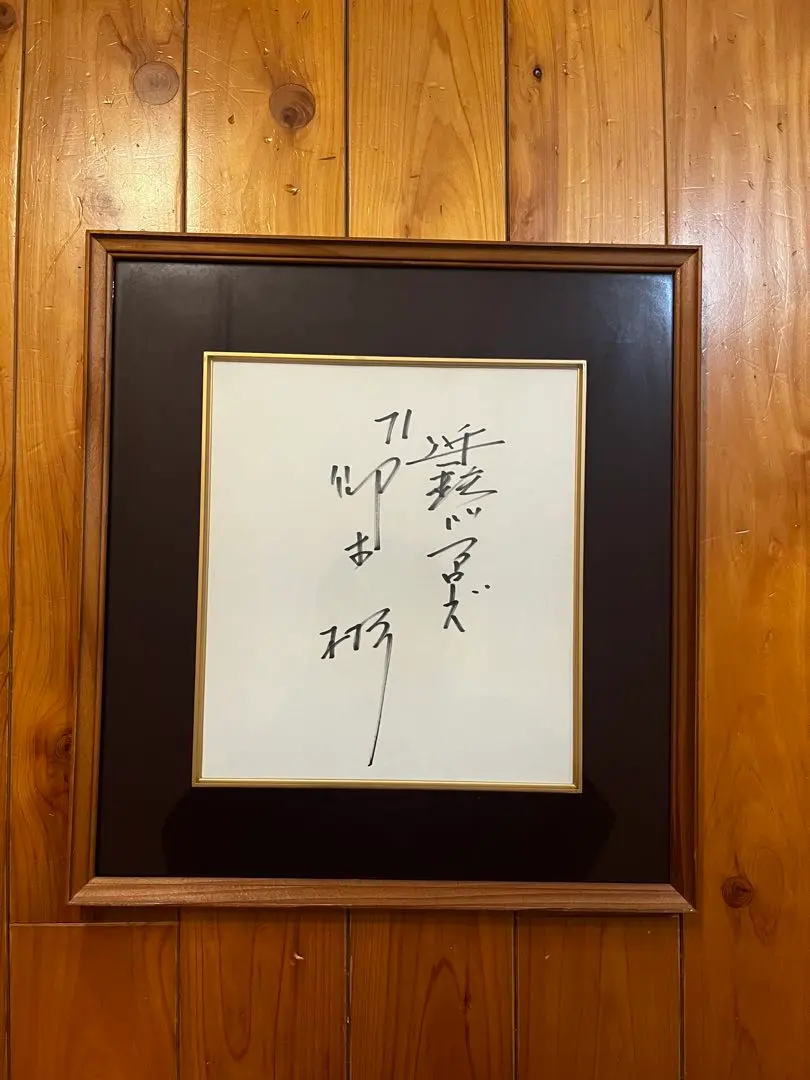 近鉄バファローズ
71
仰木彬